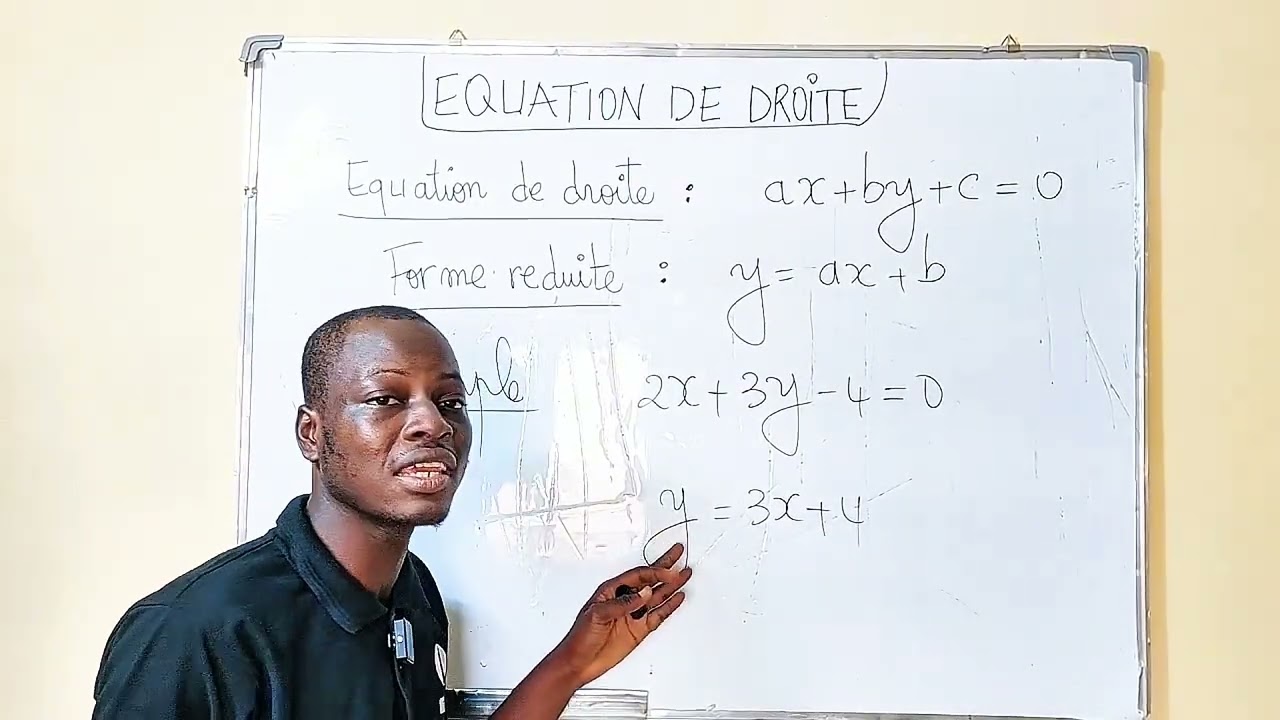 EQUATION DE DROITE
Equation de droite : ax+by+c = 0
Forme reduite : y = ax+b
2x+3y-4=0
y = 3x+4